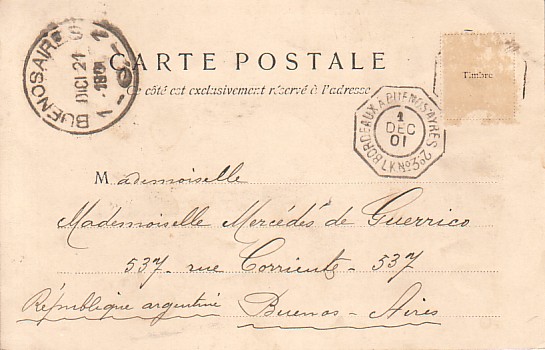 CARTE POSTALE
Ce côté est exclusivement réservé à l'adresse
Timbre
BUENOS AIRES
DICI 21
1901
BORDEAUX A BUENOS-AYRES
1
DEC
01
L.K Nº 3
Mademoiselle
Mademoiselle Mercédès de Guerrico
537 - rue Corriente - 537
République argentine Buenos - Aires